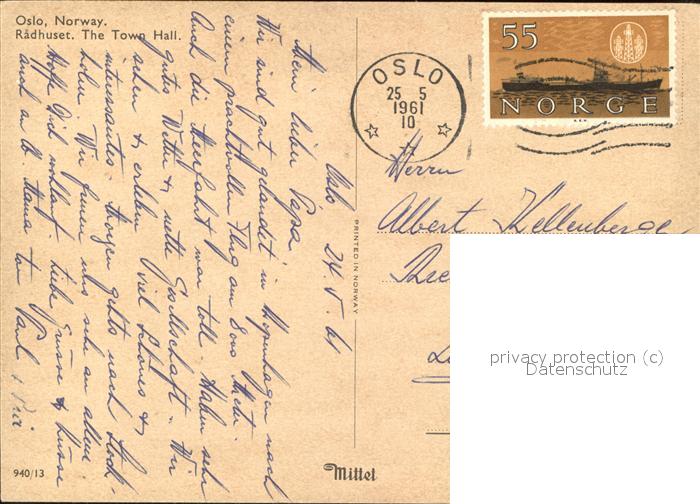 Oslo, Norway.
Rådhuset. The Town Hall.
Oslo 24.5.61
Mein lieber Papa
Wir sind gut gelandet in Kopenhagen nach
einem prachtvollen Flug am Meer.
Auch die Meerfahrt war toll. Haben sehr
gutes Wetter & nette Gesellschaft. Wir
sehen & erleben viel Schönes &
interessantes. Morgen gehts nach Stock-
holm. Wir freuen uns sehr an allem
Hoffe Dich wohlauf. Liebe Grüsse & Küsse
auch an lb. Mama von Paul &
PRINTED IN NORWAY
940/13
Mittet
OSLO
25 5
1961
10
55
NORGE
Herrn
Albert Kellenberger
privacy protection (c)
Datenschutz